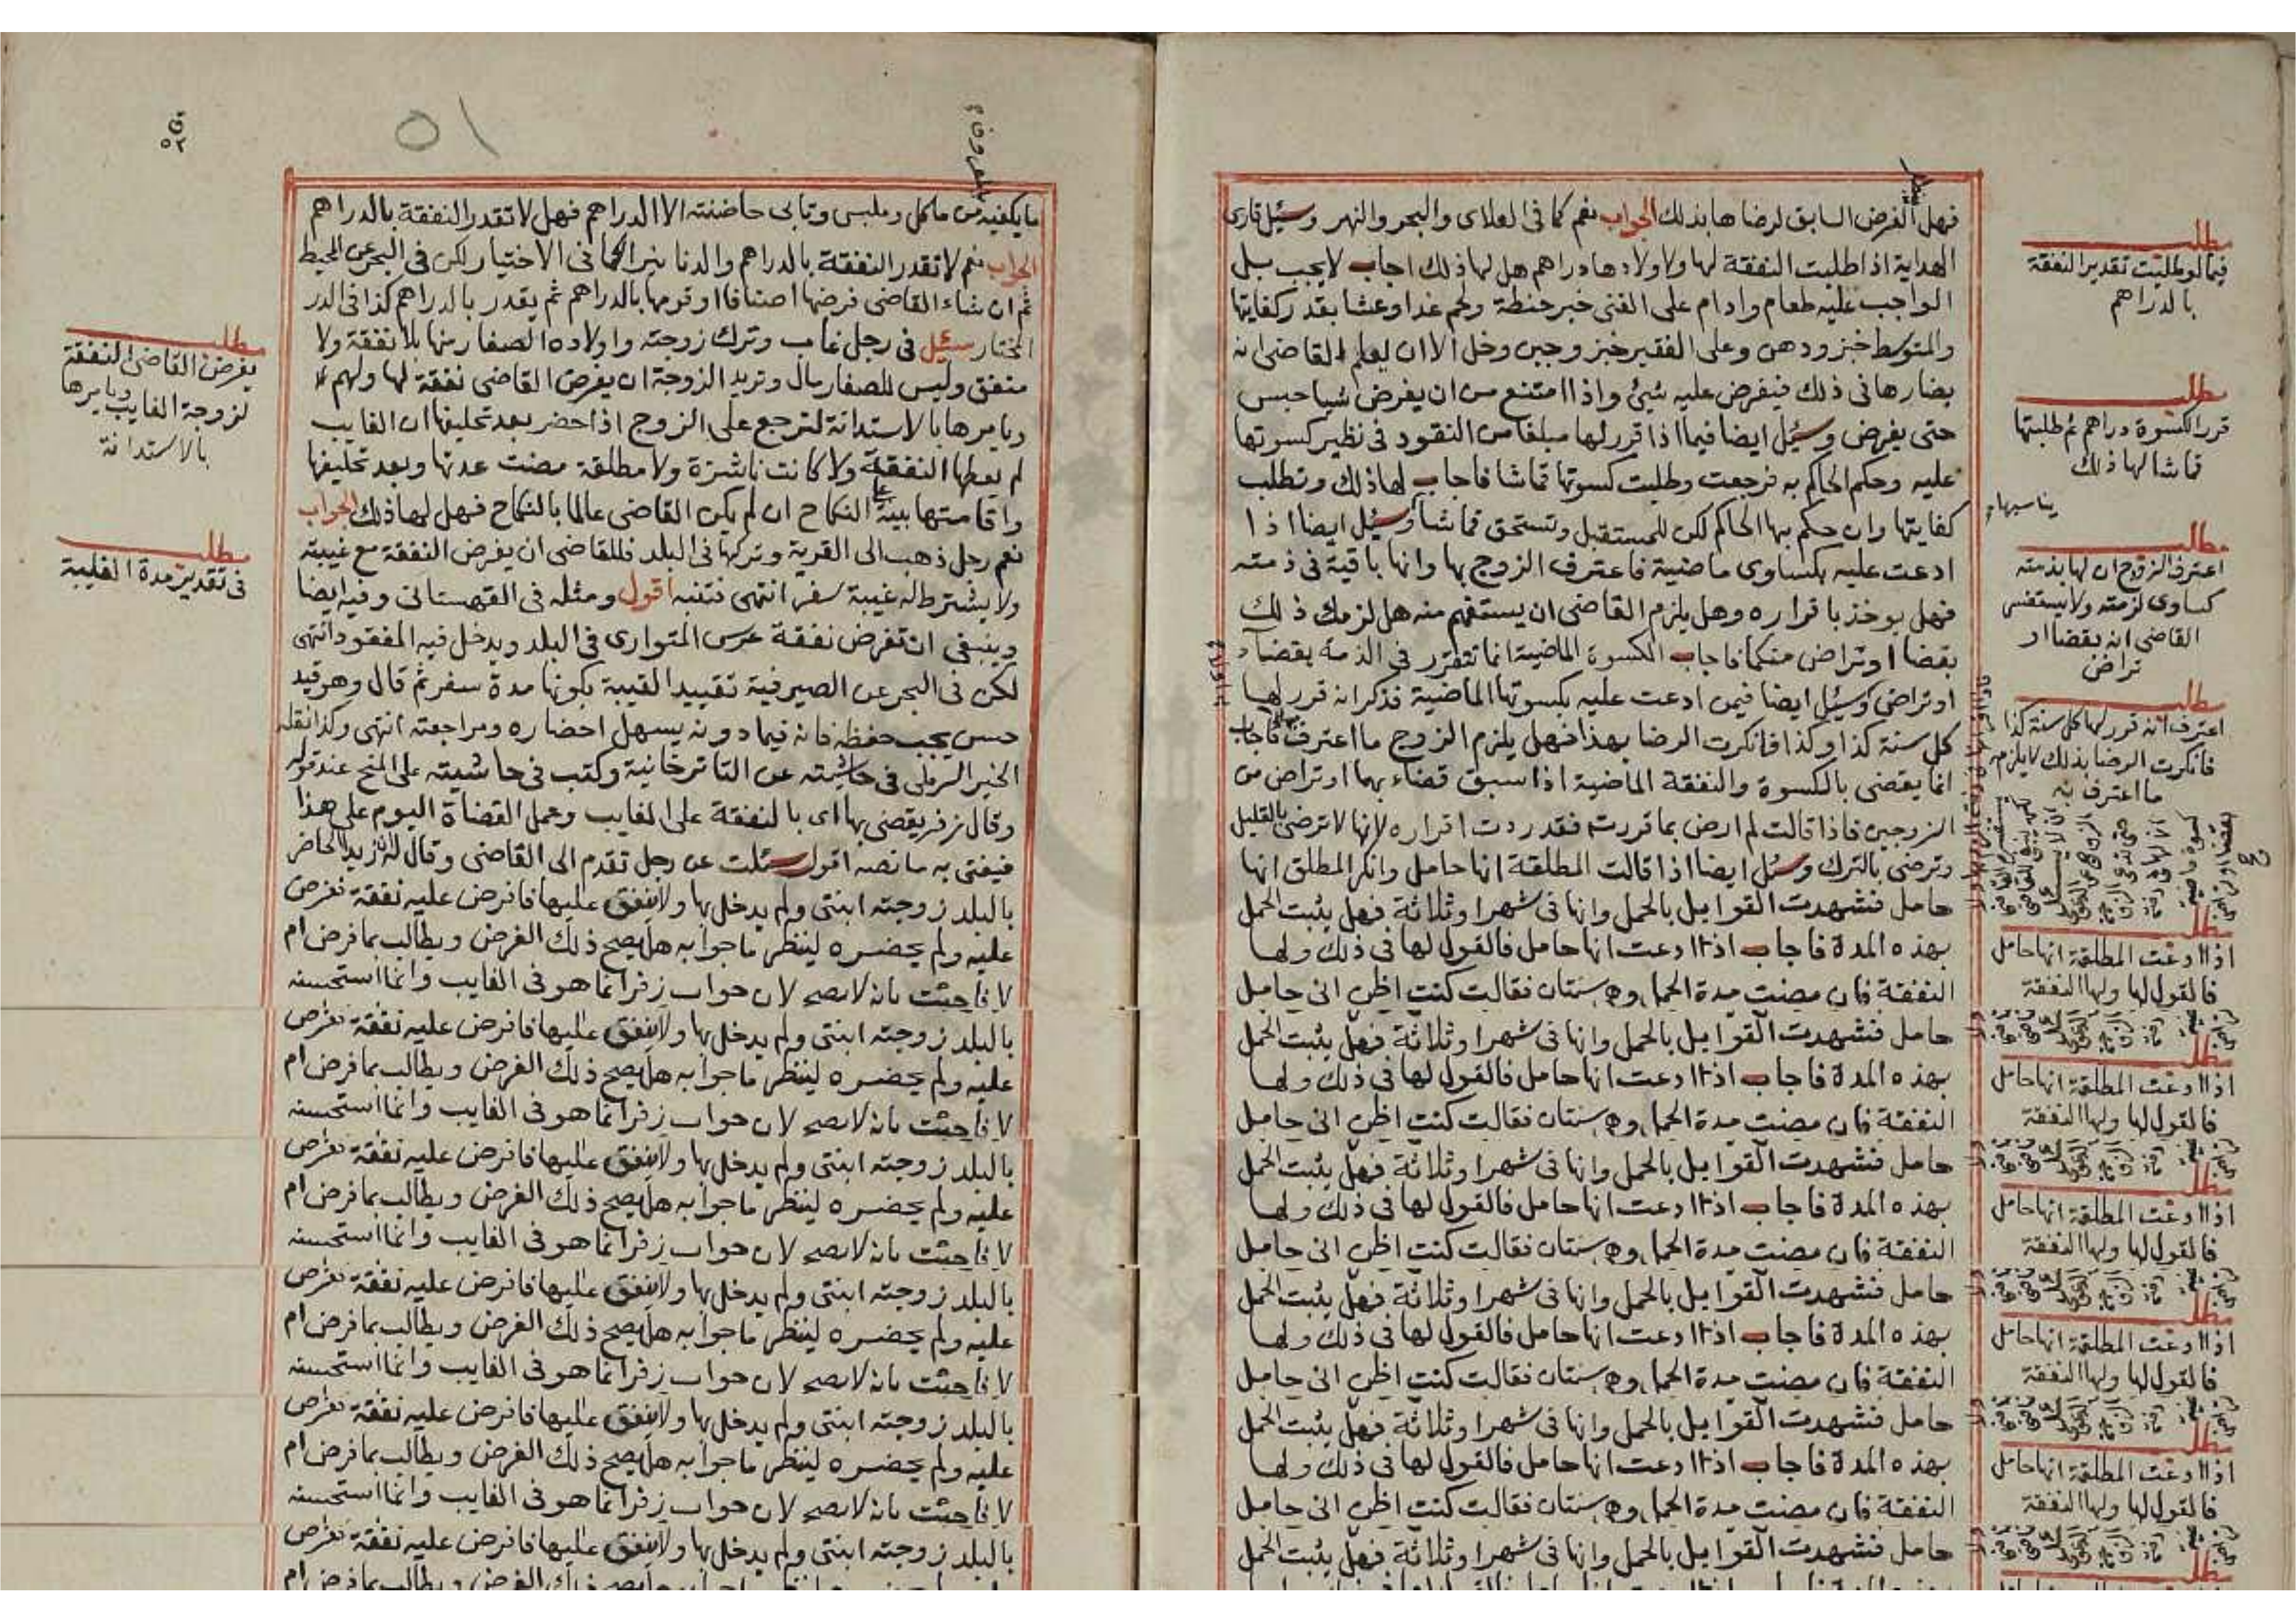 فهل الفرض السابق لرضاها بذلك الجواب نعم كما في العلاى والبحر والنهر وسئل قارى
الهداية اذا طلبت النفقة لها ولاولادها دراهم هل لها ذلك اجاب لا يجب بل
الواجب عليه طعام وادام على الغنى خبز حنطة ولحم غدا وعشا بقدر كفايتها
والمتوسط خبز ودهن وعلى الفقير خبز وجبن وخل الا ان يعلم القاضى انه
يضارها فى ذلك فيفرض عليه شيئ واذا امتنع من ان يفرض شيا حبس
حتى يفرض وسئل ايضا فيما اذا قرر لها مبلغا من النقود فى نظير كسوتها
عليه وحكم الحاكم به فرجعت وطلبت كسوتها قماشا فاجاب لها ذلك وتطلب
كفايتها وان حكم بها الحاكم لكن للمستقبل وتستحق قماشا وسئل ايضا اذا
ادعت عليه بكساوى ماضية فاعترف الزوج بها وانها باقية فى ذمته
فهل يوخذ باقراره وهل يلزم القاضى ان يستفهم منه هل لزمك ذلك
بقضا او تراض منكما فاجاب الكسوة الماضية انما تتقرر فى الذمة بقضا
او تراضى وسئل ايضا فيمن ادعت عليه بكسوتها الماضية فذكر انه قرر لها
كل سنة كذا وكذا فانكرت الرضا بهذا فهل يلزم الزوج ما اعترف به فاجاب
انما يقضى بالكسوة والنفقة الماضية اذا سبق قضاء بهما او تراض من
الزوجين فاذا قالت لم ارض بما قررت فقد ردت اقراره لانها لا ترضى بالقليل
وترضى بالترك وسئل ايضا اذا قالت المطلقة انها حامل وانكر المطلق انها
حامل فشهدت القوابل بالحمل وانها فى شهر او ثلاثة فهل يثبت الحمل
بهذه المدة فاجاب اذا ادعت انها حامل فالقول لها فى ذلك ولها
النفقة فان مضت مدة الحمل وهى سنتان فقالت كنت اظن انى حامل
حامل فشهدت القوابل بالحمل وانها فى شهر او ثلاثة فهل يثبت الحمل
بهذه المدة فاجاب اذا ادعت انها حامل فالقول لها فى ذلك ولها
النفقة فان مضت مدة الحمل وهى سنتان فقالت كنت اظن انى حامل
حامل فشهدت القوابل بالحمل وانها فى شهر او ثلاثة فهل يثبت الحمل
بهذه المدة فاجاب اذا ادعت انها حامل فالقول لها فى ذلك ولها
النفقة فان مضت مدة الحمل وهى سنتان فقالت كنت اظن انى حامل
حامل فشهدت القوابل بالحمل وانها فى شهر او ثلاثة فهل يثبت الحمل
بهذه المدة فاجاب اذا ادعت انها حامل فالقول لها فى ذلك ولها
النفقة فان مضت مدة الحمل وهى سنتان فقالت كنت اظن انى حامل
حامل فشهدت القوابل بالحمل وانها فى شهر او ثلاثة فهل يثبت الحمل
بهذه المدة فاجاب اذا ادعت انها حامل فالقول لها فى ذلك ولها
النفقة فان مضت مدة الحمل وهى سنتان فقالت كنت اظن انى حامل
حامل فشهدت القوابل بالحمل وانها فى شهر او ثلاثة فهل يثبت الحمل
مطلب
فيما لو طلبت تقدير النفقة
بالدراهم
مطلب
قرر الكسوة دراهم ثم طلبتها
قماشا لها ذلك
يناسبها
مطلب
اعترف الزوج ان لها بذمته
كساوى لزمته ولا يستفسر
القاضى انه بقضا او
تراض
مطلب
اعترف انه قرر لها كل سنة كذا
فانكرت الرضا بذلك لا يلزم
ما اعترف به
مطلب
اذا ادعت المطلقة انها حامل
فالقول لها ولها النفقة
مطلب
اذا ادعت المطلقة انها حامل
فالقول لها ولها النفقة
مطلب
اذا ادعت المطلقة انها حامل
فالقول لها ولها النفقة
مطلب
اذا ادعت المطلقة انها حامل
فالقول لها ولها النفقة
مطلب
اذا ادعت المطلقة انها حامل
فالقول لها ولها النفقة
مطلب
٥١
٥٢
ما يكفيه من ماكل وملبس وتابى حاضنته الا الدراهم فهل لا تقدر النفقة بالدراهم
الجواب نعم لا تقدر النفقة بالدراهم والدنانير كما فى الاختيار لكن فى البحر عن المحيط
ثم ان شاء القاضى فرضها اصنافا او قومها بالدراهم ثم يقدر بالدراهم كذا فى الدر
المختار سئل فى رجل غاب وترك زوجته واولاده الصغار منها بلا نفقة ولا
منفق وليس للصغار مال وتريد الزوجة ان يفرض القاضى نفقة لها ولهم
ويامرها بالاستدانة لترجع على الزوج اذا حضر بعد تحليفها ان الغايب
لم يعطها النفقة ولا كانت ناشزة ولا مطلقة مضت عدتها وبعد تحليفها
واقامتها بينة على النكاح ان لم يكن القاضى عالما بالنكاح فهل لها ذلك الجواب
نعم رجل ذهب الى القرية وتركها فى البلد فللقاضى ان يفرض النفقة مع غيبته
ولا يشترط له غيبة سفر انتهى فتنبه اقول ومثله فى القهستانى وفيه ايضا
وينبغى ان تفرض نفقة عرس المتوارى فى البلد ويدخل فيه المفقود انتهى
لكن فى البحر عن الصيرفية تقييد الغيبة بكونها مدة سفر ثم قال وهو قيد
حسن يجب حفظه فانه فيما دونه يسهل احضاره ومراجعته انتهى وكذا نقله
الخير الرملى فى حاشيته عن التاترخانية وكتب فى حاشيته على المنح عند قوله
وقال زفر يقضى بها اى بالنفقة على الغايب وعمل القضاة اليوم على هذا
فيفتى به ما نصه اقول سئلت عن رجل تقدم الى القاضى وقال له ان زيد الحاضر
بالبلد زوجته ابنتى ولم يدخل بها ولا ينفق عليها فافرض عليه نفقة ففرض
عليه ولم يحضره لينظر ما جوابه هل يصح ذلك الفرض ويطالب بما فرض ام
لا فاجبت بانه لا يصح لان جواب زفر انما هو فى الغايب وانما استحسنه
بالبلد زوجته ابنتى ولم يدخل بها ولا ينفق عليها فافرض عليه نفقة ففرض
عليه ولم يحضره لينظر ما جوابه هل يصح ذلك الفرض ويطالب بما فرض ام
لا فاجبت بانه لا يصح لان جواب زفر انما هو فى الغايب وانما استحسنه
بالبلد زوجته ابنتى ولم يدخل بها ولا ينفق عليها فافرض عليه نفقة ففرض
عليه ولم يحضره لينظر ما جوابه هل يصح ذلك الفرض ويطالب بما فرض ام
لا فاجبت بانه لا يصح لان جواب زفر انما هو فى الغايب وانما استحسنه
بالبلد زوجته ابنتى ولم يدخل بها ولا ينفق عليها فافرض عليه نفقة ففرض
عليه ولم يحضره لينظر ما جوابه هل يصح ذلك الفرض ويطالب بما فرض ام
لا فاجبت بانه لا يصح لان جواب زفر انما هو فى الغايب وانما استحسنه
بالبلد زوجته ابنتى ولم يدخل بها ولا ينفق عليها فافرض عليه نفقة ففرض
عليه ولم يحضره لينظر ما جوابه هل يصح ذلك الفرض ويطالب بما فرض ام
لا فاجبت بانه لا يصح لان جواب زفر انما هو فى الغايب وانما استحسنه
بالبلد زوجته ابنتى ولم يدخل بها ولا ينفق عليها فافرض عليه نفقة ففرض
عليه ولم يحضره لينظر ما جوابه هل يصح ذلك الفرض ويطالب بما فرض ام
مطلب
يفرض القاضى النفقة
لزوجة الغايب ويامرها
بالاستدانة
مطلب
فى تقدير مدة الغيبة